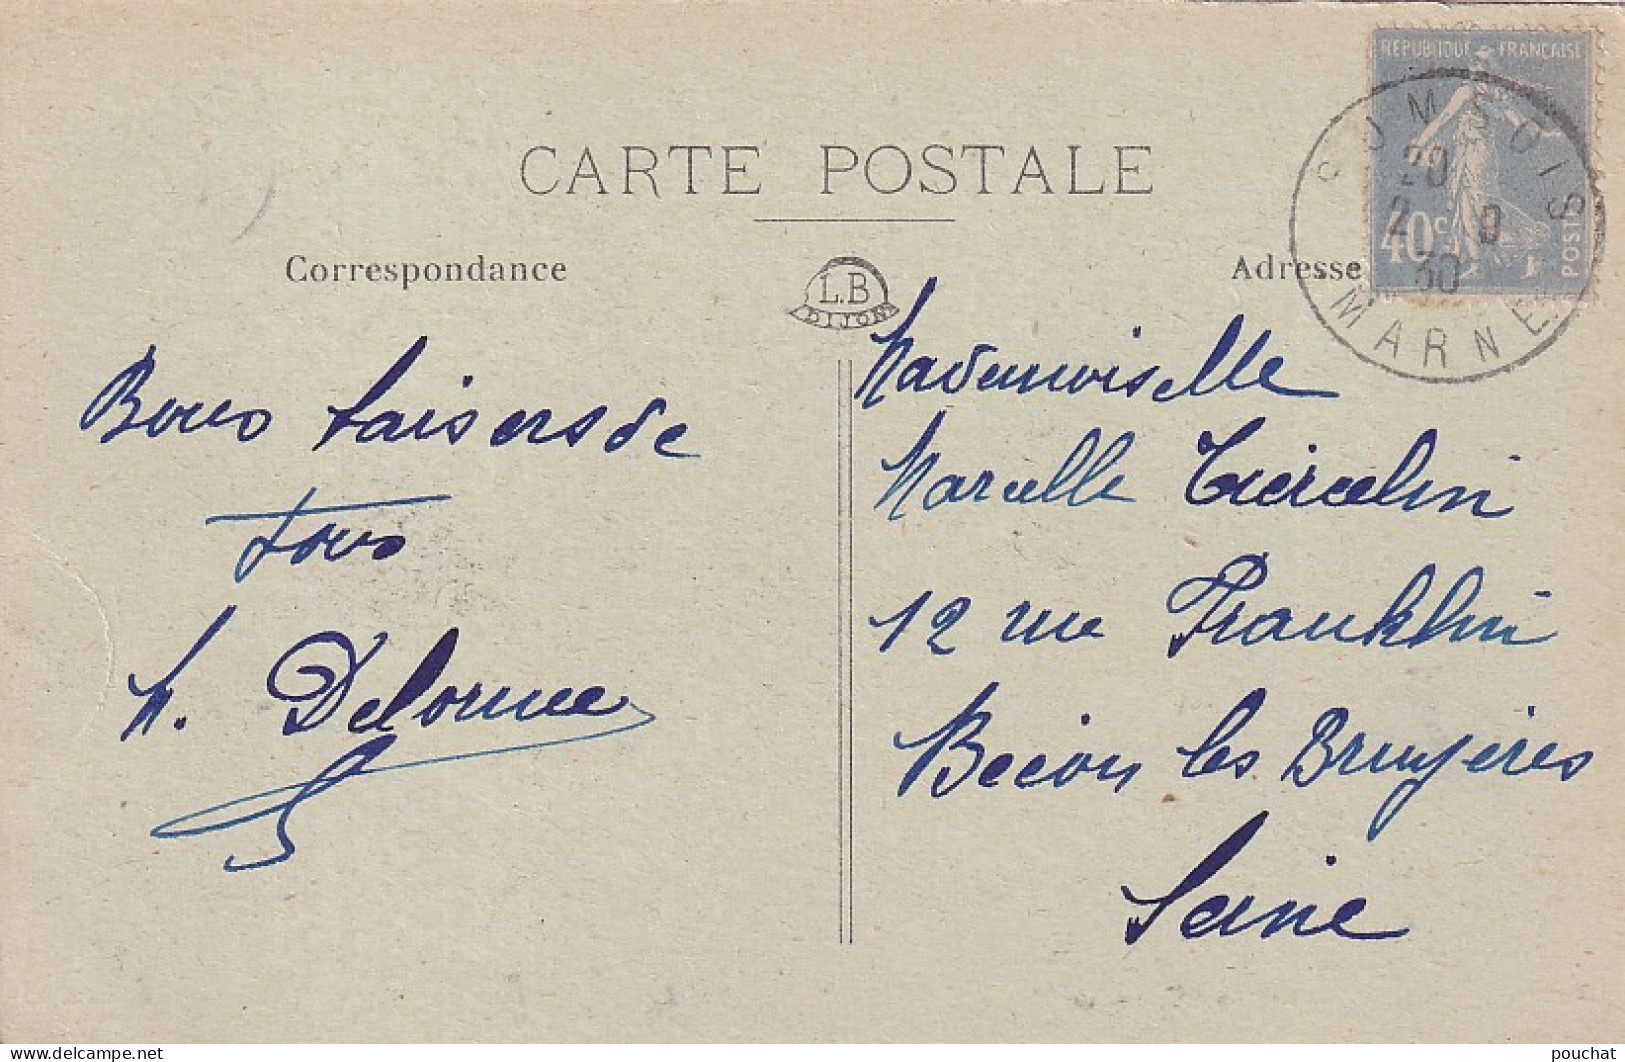 CARTE POSTALE
Correspondance
Adresse
L.B
DIJON
REPUBLIQUE FRANÇAISE
40c
POSTES
SOMSOIS
20
2 9
30
MARNE
Bons baisers de
tous
M. Delorme
Mademoiselle
Marcelle
12 rue Franklin
Becon les Bruyères
Seine
delcampe.net
pouchat